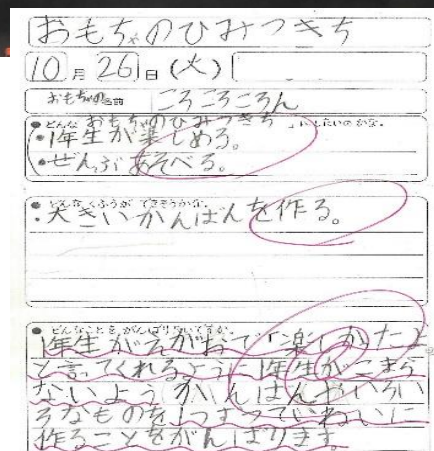 おもちゃのひみつきち
10月26日(火)
おもちゃの名前 ころころころん
●どんな「おもちゃのひみつきち」にしたいのかな。
・1年生が楽しめる。
・ぜんぶあそべる。
●どんなくふうができそうかな。
・大きいかんばんを作る。
●どんなことをがんばりたいですか。
1年生がえがおで「楽しかったよ」
と言てくれるように1年生がこまら
ないよう かんばんやいろい
ろなものを1つずつていねいに
作ることをがんばります